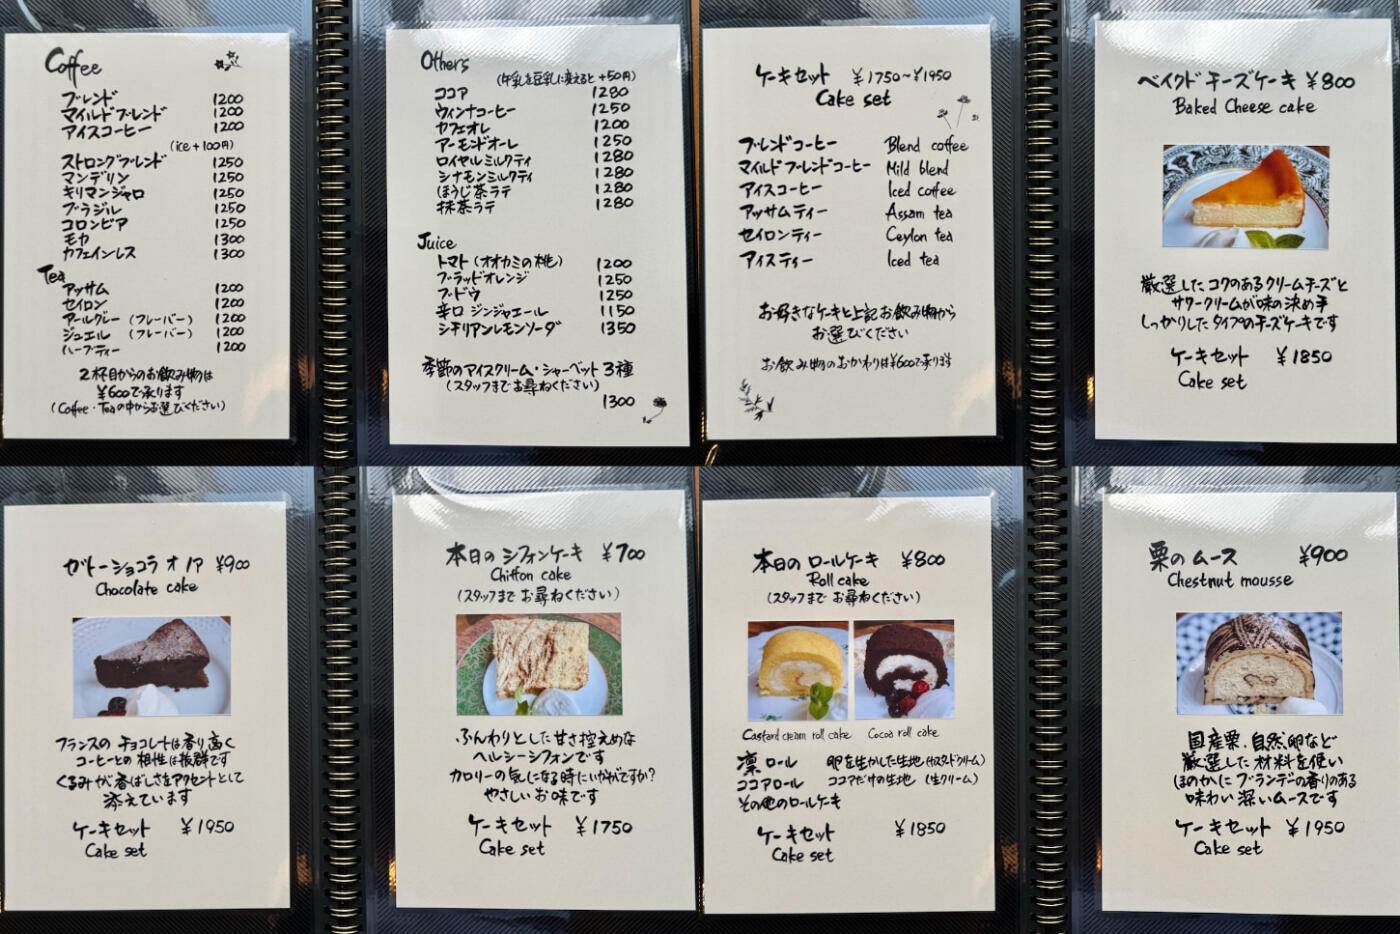 Coffee
ブレンド 1200
マイルドブレンド 1200
アイスコーヒー 1200
(ice+100円)
ストロングブレンド 1250
マンデリン 1250
キリマンジャロ 1250
ブラジル 1250
コロンビア 1250
モカ 1300
カフェインレス 1300
Tea
アッサム 1200
セイロン 1200
アールグレー (フレーバー) 1200
ジュエル (フレーバー) 1200
ハーブティー 1200
2杯目からのお飲み物は
¥600で承ります
(Coffee・Teaの中からお選びください)
Others
(牛乳を豆乳に変えると+50円)
ココア 1280
ウィンナコーヒー 1250
カフェオレ 1200
アーモンドオーレ 1250
ロイヤルミルクティ 1280
シナモンミルクティ 1280
ほうじ茶ラテ 1280
抹茶ラテ 1280
Juice
トマト(オオカミの桃) 1200
ブラッドオレンジ 1250
ブドウ 1250
辛口ジンジャエール 1150
シチリアンレモンソーダ 1350
季節のアイスクリーム・シャーベット3種
(スタッフまでお尋ねください)
1300
ケーキセット ¥1750~¥1950
Cake set
ブレンドコーヒー Blend coffee
マイルドブレンドコーヒー Mild blend
アイスコーヒー Iced coffee
アッサムティー Assam tea
セイロンティー Ceylon tea
アイスティー Iced tea
お好きなケーキと上記お飲み物から
お選びください
お飲み物のおかわりは¥600で承ります
ベイクドチーズケーキ ¥800
Baked Cheese cake
厳選したコクのあるクリームチーズと
サワークリームが味の決め手
しっかりしたタイプのチーズケーキです
ケーキセット ¥1850
Cake set
ガトーショコラオノア ¥900
Chocolate cake
フランスのチョコレートは香り高く
コーヒーとの相性は抜群です
くるみが香ばしさをアクセントとして
添えています
ケーキセット ¥1950
Cake set
本日のシフォンケーキ ¥700
Chiffon cake
(スタッフまでお尋ねください)
ふんわりとした甘さ控えめな
ヘルシーシフォンです
カロリーの気になる時にいかがですか?
やさしいお味です
ケーキセット ¥1750
Cake set
本日のロールケーキ ¥800
Roll cake
(スタッフまでお尋ねください)
Castard cream roll cake Cocoa roll cake
凛ロール 卵を生かした生地(カスタードクリーム)
ココアロール ココアだけの生地 (生クリーム)
その他のロールケーキ
ケーキセット ¥1850
Cake set
栗のムース ¥900
Chestnut mousse
国産栗、自然卵など
厳選した材料を使い
ほのかにブランデーの香りのある
味わい深いムースです
ケーキセット ¥1950
Cake set